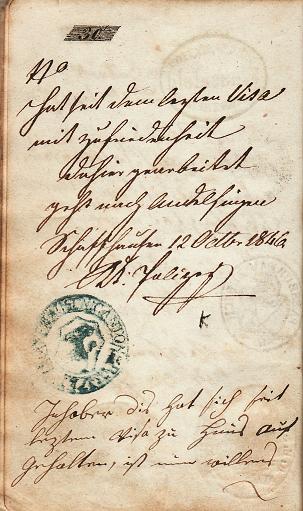 36
No
hat seit dem letzten Visa
mit zufriedenheit
dahier gearbeitet
geht nach Andelfingen
Schaffhausen 12 Octbr 1846
Polizey
K
Inhaber dis hat sich seit
letztem Visa zu Haus auf
gehalten, ist nun willens